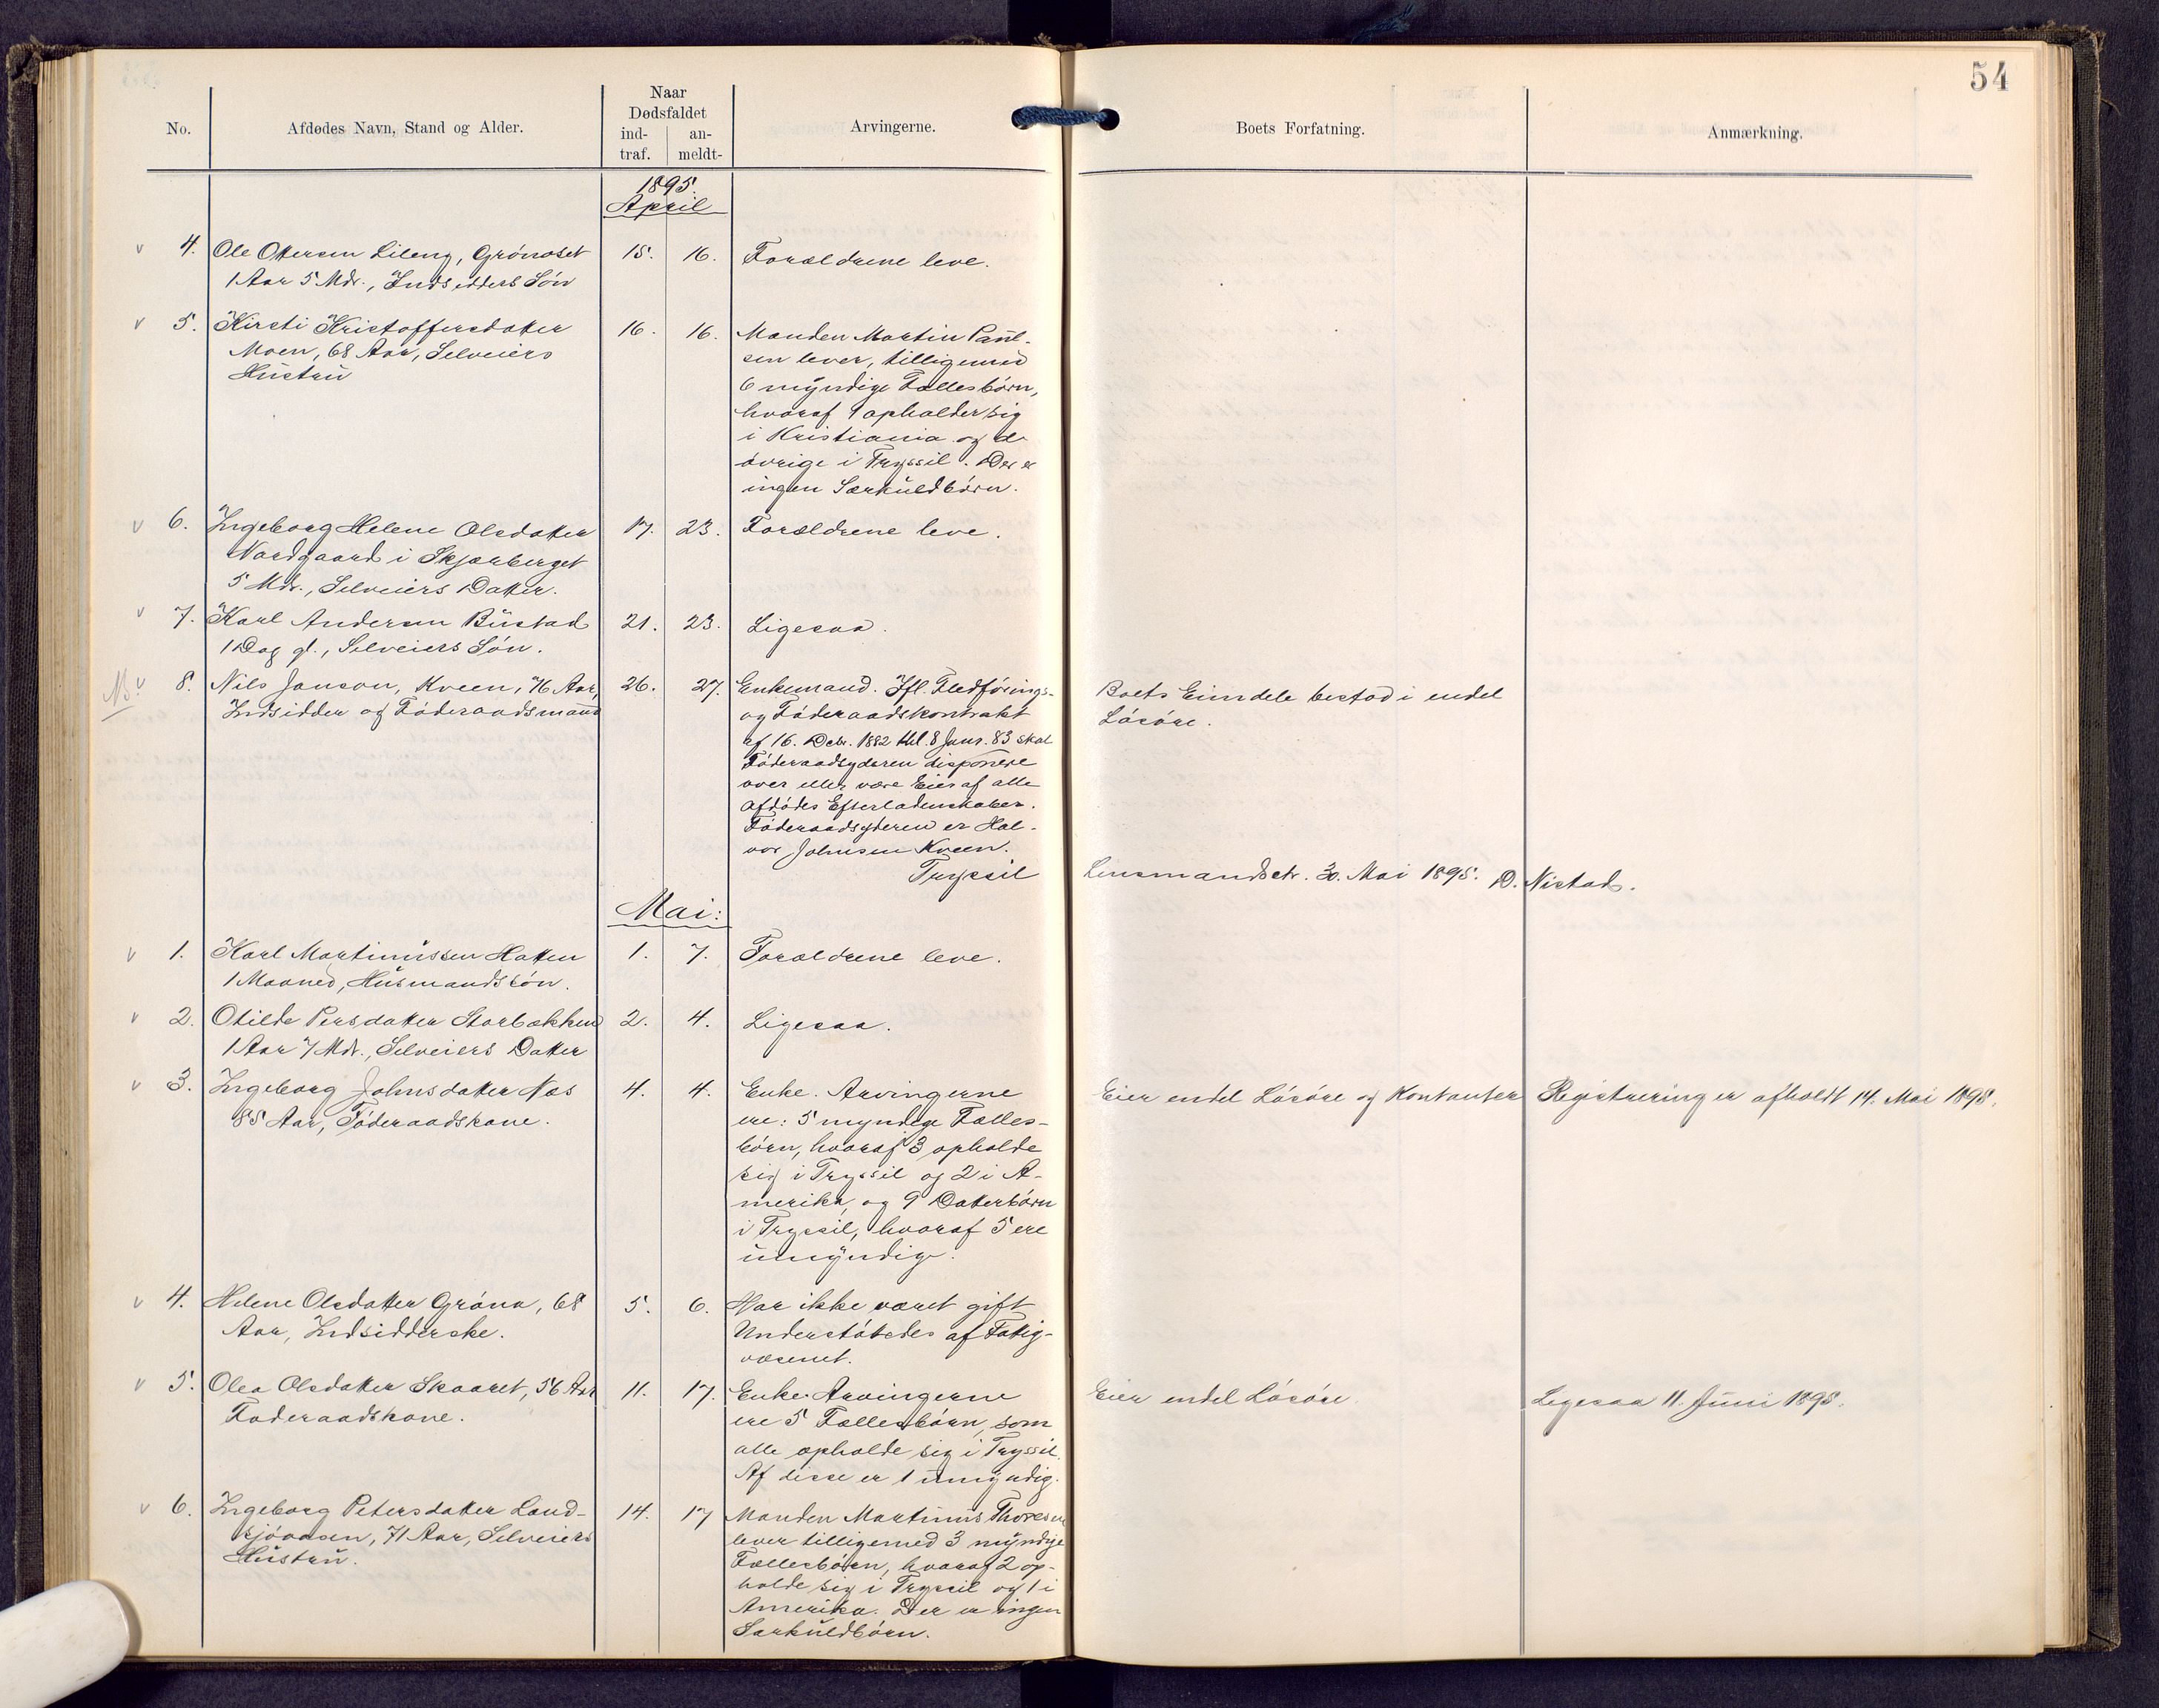 54
No.
Afdødes Navn, Stand og Alder.
Naar
Dødsfaldet
ind-
traf.
an-
meldt-
Arvingerne.
Boets Forfatning.
Anmærkning.
1895.
April
4. Ole Ottersen Lileng, Grönoset 15. 16. Forældrene leve.
1 Aar 5 Mdr., Indsidders Sön
5. Kirsti Kristoffersdatter 16. 16. Manden Martin Paul-
Moen, 68 Aar, Selveiers sen lever, tilligemed
Hustru 6 myndige Fællesbörn,
hvoraf 1 opholder sig
i Kristiania og de
övrige i Tryssil. Der er
ingen Særkuldbörn.
6. Ingeborg Helene Olsdatter 17. 23. Forældrene leve.
Nordgaard i Skjærberget
5 Mdr., Selveiers Datter.
7. Karl Andersen Bustad 21. 23. Ligesaa.
1 Dag gl., Selveiers Sön.
8. Nils Janson, Kveen, 76 Aar, 26. 27. Enkemand. Ifl. Fledförings- Boets Eiendele bestod i endel
Indsidder og Föderaadsmand og Föderaadskontrakt Lösöre.
af 16. Decbr. 1882 thl. 8 Janr. 83 skal
Föderaadsyderen disponere
over eller være Eier af alle
Afdödes Efterladenskaber.
Föderaadsyderen er Hal-
vor Johnsen Kveen.
Tryssil Lensmandsetr. 30. Mai 1895. D. Nistad.
Mai:
1. Karl Martinussen Hatten 1. 7. Forældrene leve.
1 Maaned, Husmandssön.
2. Otilde Persdatter Storbækken 2. 4. Ligesaa.
1 Aar 7 Mdr., Selveiers Datter
3. Ingeborg Johnsdatter Næs 4. 4. Enke. Arvingerne Eier endel Lösöre og Kontanter Registrering er afholdt 14. Mai 1895.
85 Aar, Föderaadskone. ere: 5 myndige Fælles-
börn, hvoraf 3 opholde
sig i Tryssil og 2 i A-
merika, og 9 Datterbörn
i Tryssil, hvoraf 5 ere
umyndige.
4. Helene Olsdatter Gröna, 68 5. 6. Har ikke været gift
Aar, Indsidderske. Understöttedes af Fattig-
væsenet.
5. Olea Olsdatter Skaaret, 56 Aar 11. 17. Enke. Arvingerne Eier endel Lösöre Ligesaa 11. Juni 1895.
Föderaadskone. ere 5 Fællesbörn, som
alle opholde sig i Tryssil.
Af disse er 1 umyndig.
6. Ingeborg Petersdatter Land- 14. 17 Manden Martinus Thoresen
sjöaasen, 71 Aar, Selveiers lever tilligemed 3 myndige
Hustru. Fællesbörn, hvoraf 2 op-
holde sig i Tryssil og 1 i
Amerika. Der er ingen
Særkuldbörn.